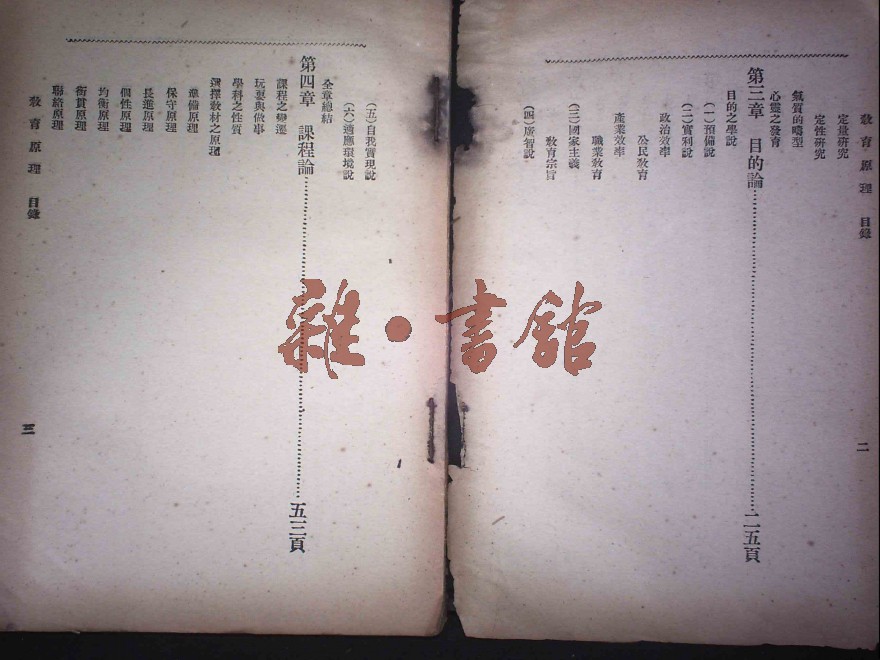 教育原理 目錄
二
定量研究
定性研究
氣質的疇型
心靈之發育
第三章 目的論……二五頁
目的之學說
(一)預備說
(二)實利說
政治效率
公民教育
產業效率
職業教育
(三)國家主義
教育宗旨
(四)廣智說
(五)自我實現說
(六)適應環境說
全章總結
第四章 課程論……五三頁
課程之變遷
玩耍與做事
學科之性質
選擇教材之原理
準備原理
保守原理
長進原理
個性原理
均衡原理
銜貫原理
聯絡原理
教育原理 目錄
三
雜·書舘